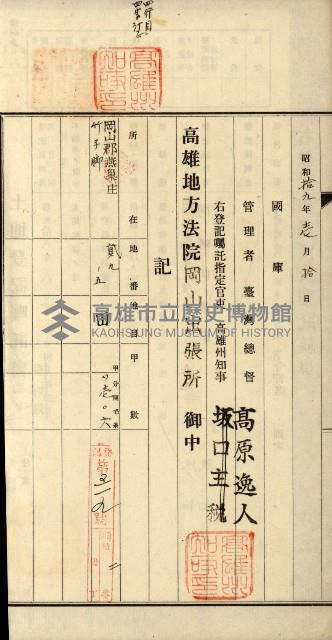 昭和拾九年壱月拾日
國庫
管理者臺灣總督
右登記囑託指定官吏 高雄州知事
高原逸人
坂口主税
高雄地方法院岡山出張所 御中
記
所在 地番 地目 甲數
岡山郡燕巢庄
竹子脚
貳九
五
山
高雄州知事印
高雄州知事印
高雄市立歷史博物館
KAOHSIUNG MUSEUM OF HISTORY